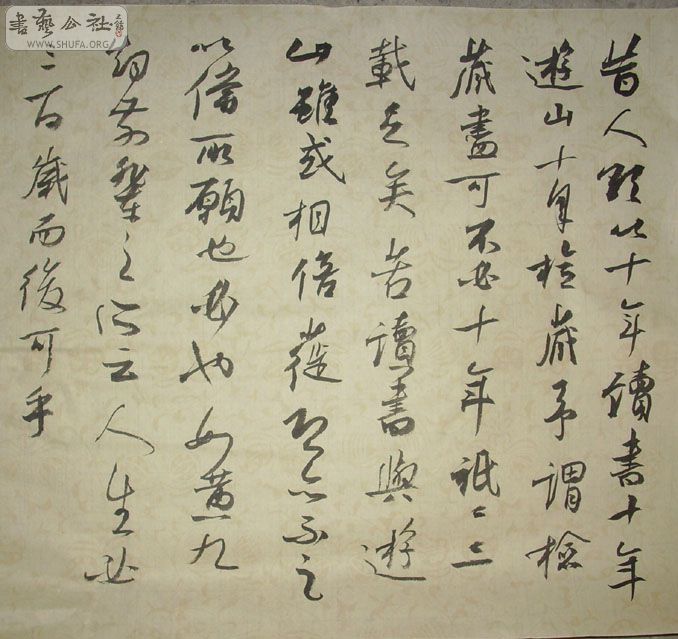 書藝公社
WWW.SHUFA.ORG
昔人欲以十年讀書十年
遊山十年檢藏予謂檢
藏盡可不必十年祇二三
載足矣若讀書與遊
山雖或相倍蓰恐亦不足
以償所願也必也如黃九
煙前輩之所云人生必
三百歲而後可乎